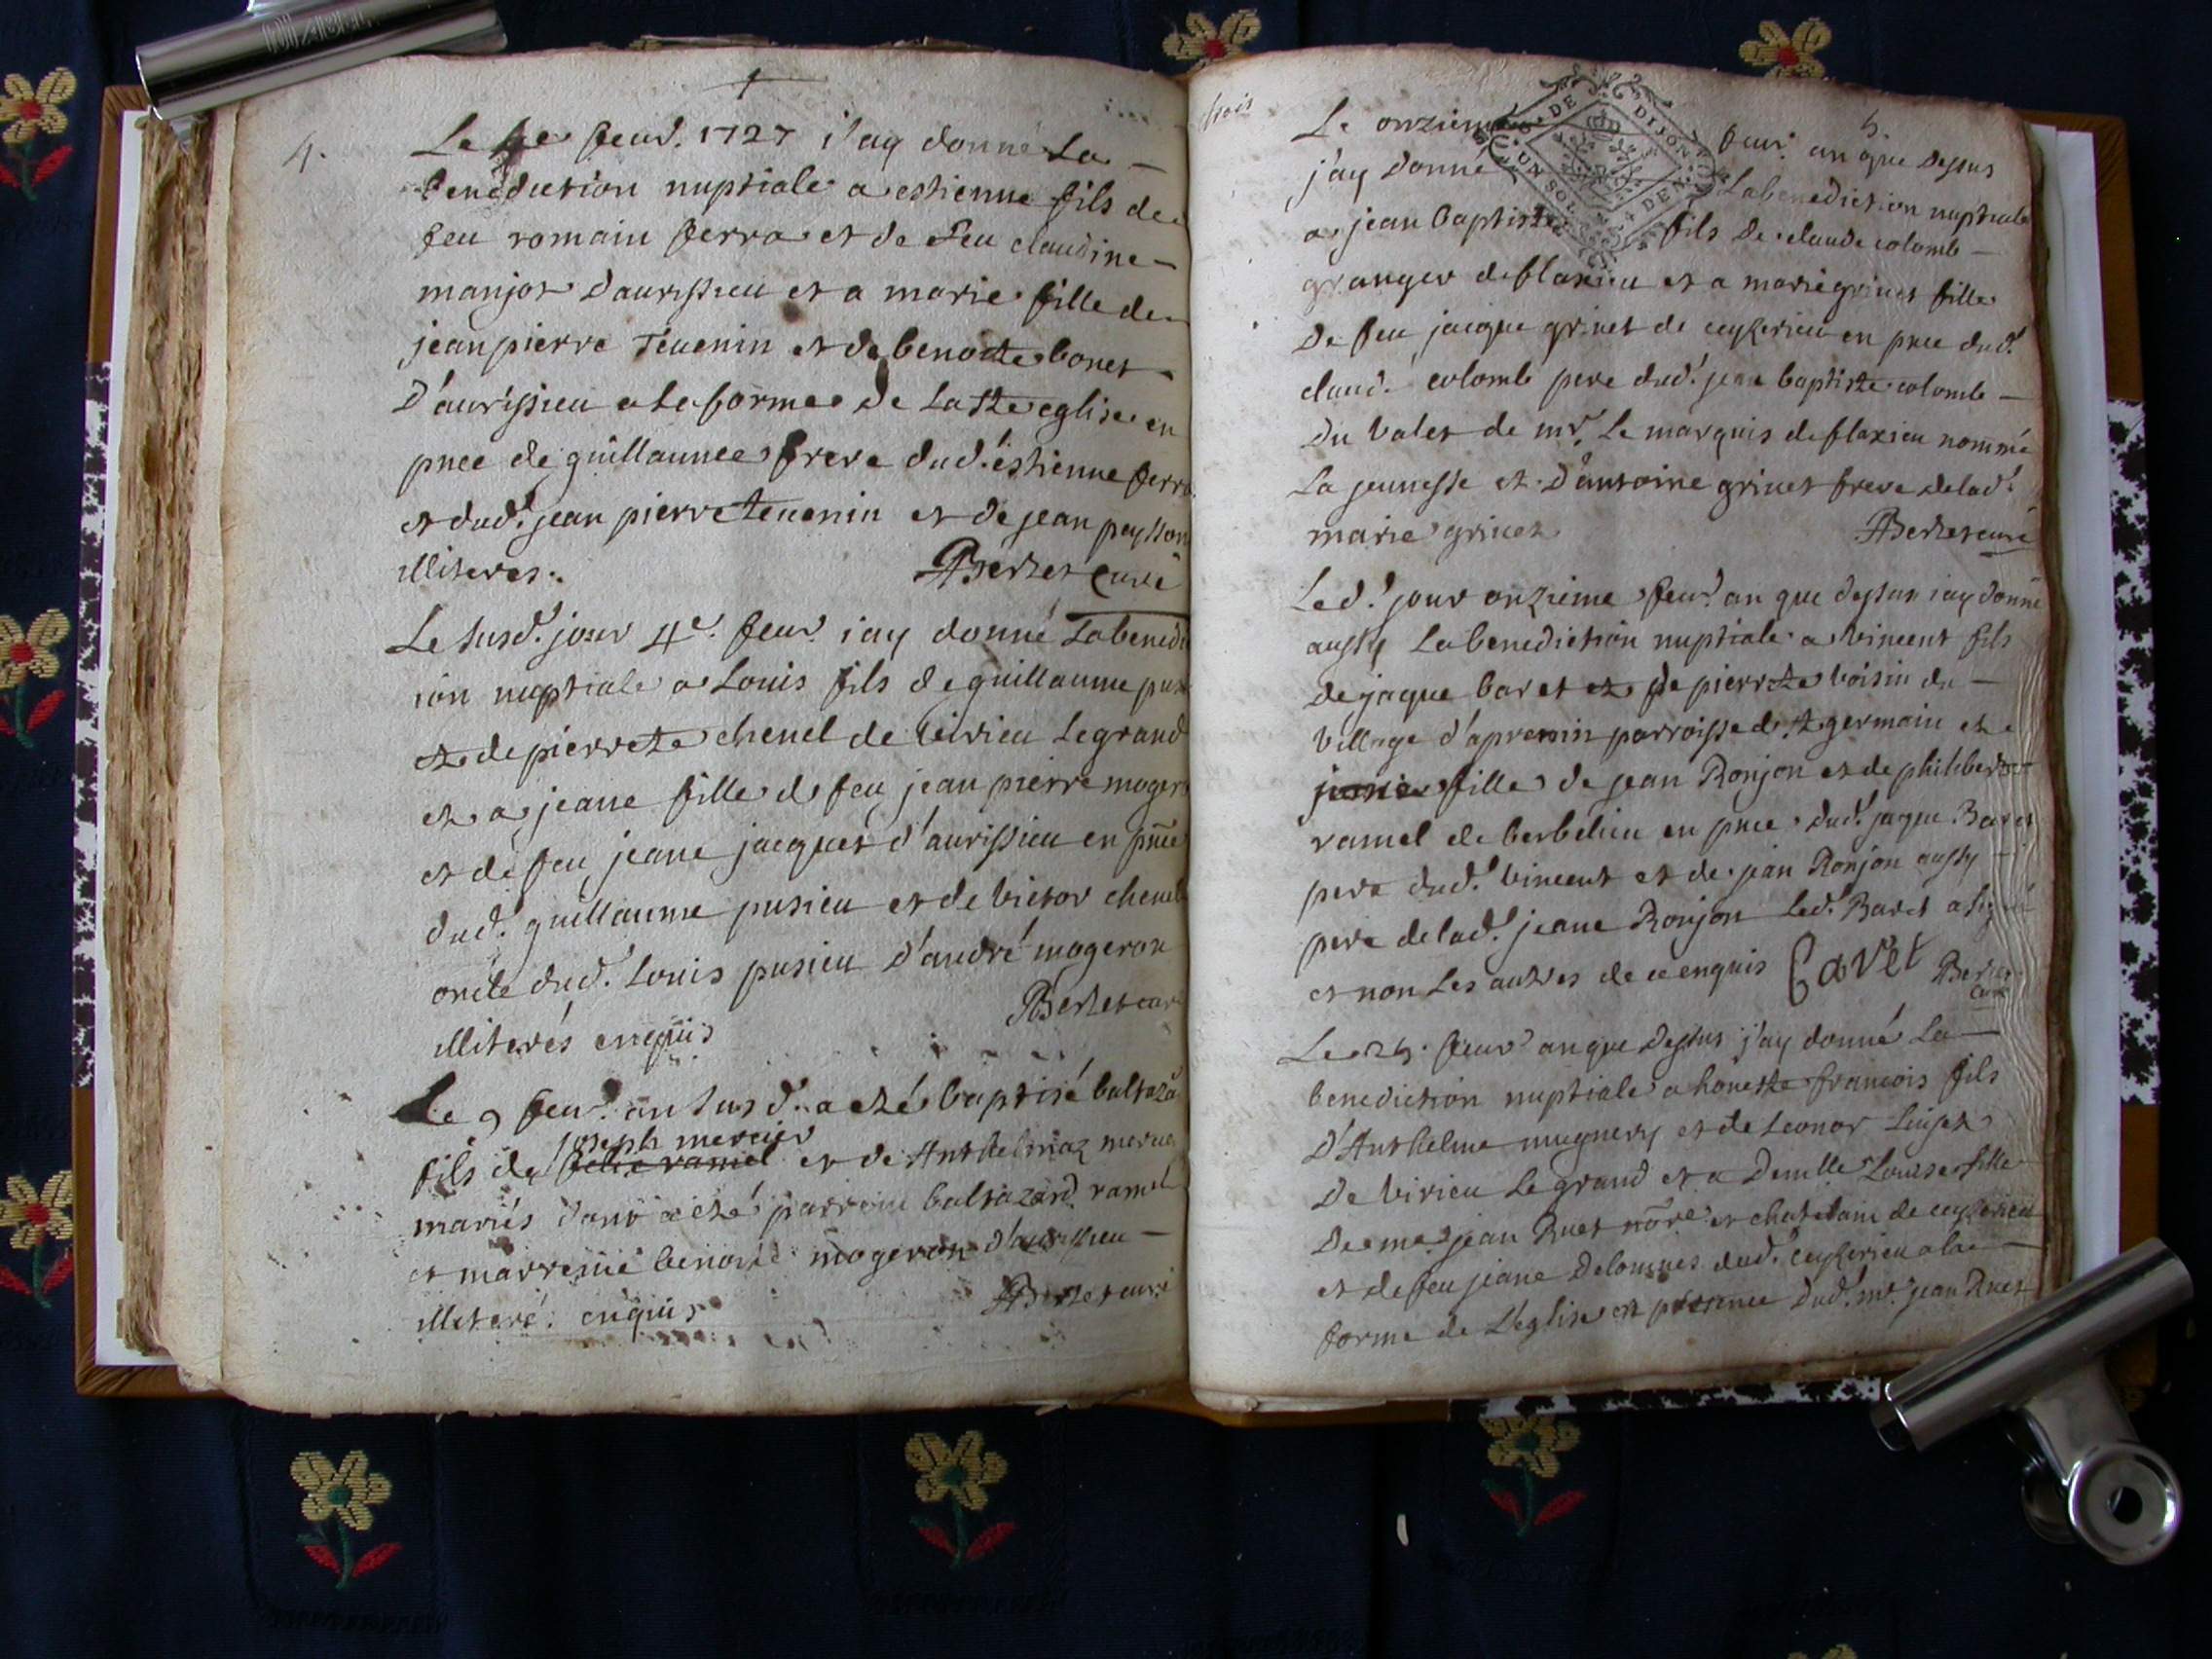 4.
Le 4e feuv. 1727 j'ay donné La
benediction nuptiale a estienne fils de
feu romain ferra et de feu claudine
manjot d'aurissieu et a marie fille de
jean pierre Teuenin et de benoitte bonet
D'aurissieu a la forme de La Ste eglise en
pnce de guillaume frere dud. estienne ferra
et dud. jean pierre teuenin et de jean peysson
illiteres. Berlet curé
Le susd. jour 4e. feuv. j'ay donné La benedi
ion nuptiale a Louis fils de guillaume
et de pierrete chenel de virieu Legrand
et a jeane fille de feu jean pierre moger
et de feu jeane jacques d'aurissieu en pnce
dud. guillaume pusieu et de victor chenel
oncle dud. Louis pusieu D'andré mogeron
illiterés enquis Berlet cur
Le 9 feuv. an susd. a eté baptisé baltaza
joseph mercier
fils de et de Anthelmaz
mariés dont a eté parrein baltazard ramel
et marreine benoite mogeron d'aurissieu
illiteré. enquis Berlet curé
trois
5.
DE DIJON
UN SOL 4 DEN.
Le onzieme feuv. an que Dessus
j'ay Donné La benediction nuptiale
a jean baptiste fils De claude colomb
granger de flaxieu et a marie grinet fille
De feu jacque grinet de ceyzerieu en pnce dud.
claud. colomb pere dud. jean baptiste colomb
Du valet de mr. Le marquis de flaxieu nommé
La jeunesse et D'antoine grinet frere de lad.
marie grinet Berlet curé
Led. jour onzieme feuv. an que dessus j'ay donné
aussy La benediction nuptiale a vincent fils
de jaque baret et de pierrete voisin du
village d'apremin parroisse de St germain et a
fille de jean Ronjon et de philiberte
ramel de berbelieu en pnce dud. jaque Baret
pere dud. vincent et de jean Ronjon aussy
pere de lad. jeane Ronjon Led. Baret a signé
et non Les autres de ce enquis Bavet Berlet
curé
Le 25. feuv. an que Dessus j'ay donné La
benediction nuptiale a honeste francois fils
D'Anthelme mugnery et de Leonor
De virieu Le grand et a Demlle Louise fille
De me. jean Ruet nore et chatelain de ceyzerieu
et de feu jeane Delommes dud. ceyzerieu a la
forme de L'eglise en presence Dud. me. jean Ruet